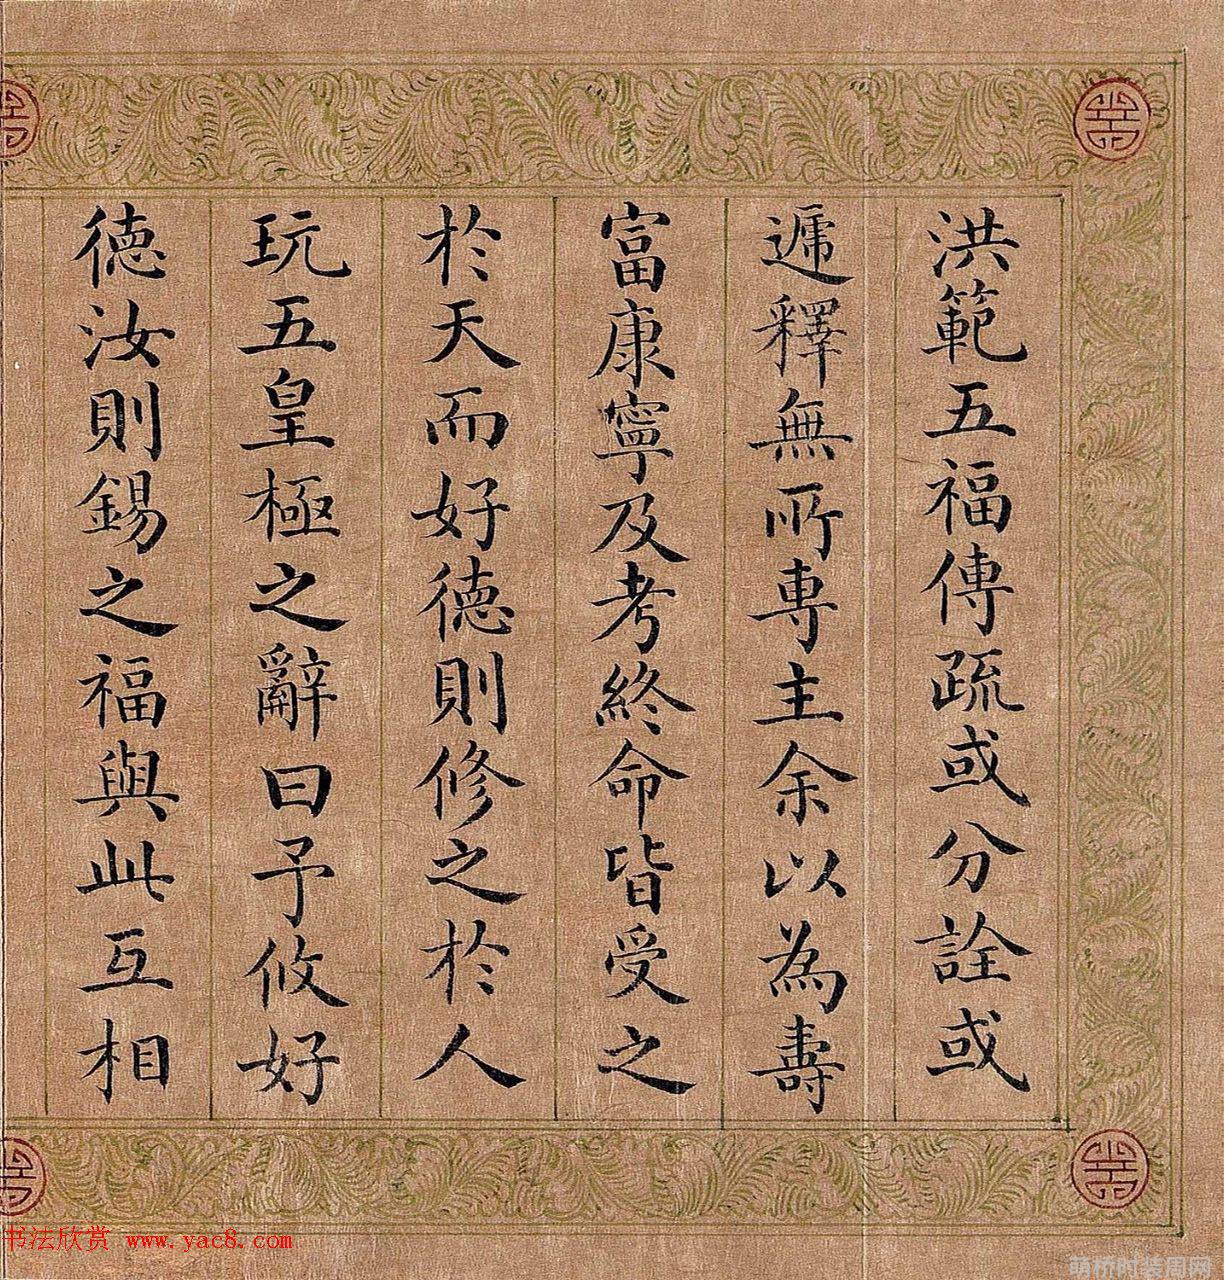 洪範五福傳疏或分詮或
遞釋無所專主余以為壽
富康寧及考終命皆受之
於天而好德則修之於人
玩五皇極之辭曰予攸好
德汝則錫之福與此互相
书法欣赏 www.yac8.com
萌桥时装周网